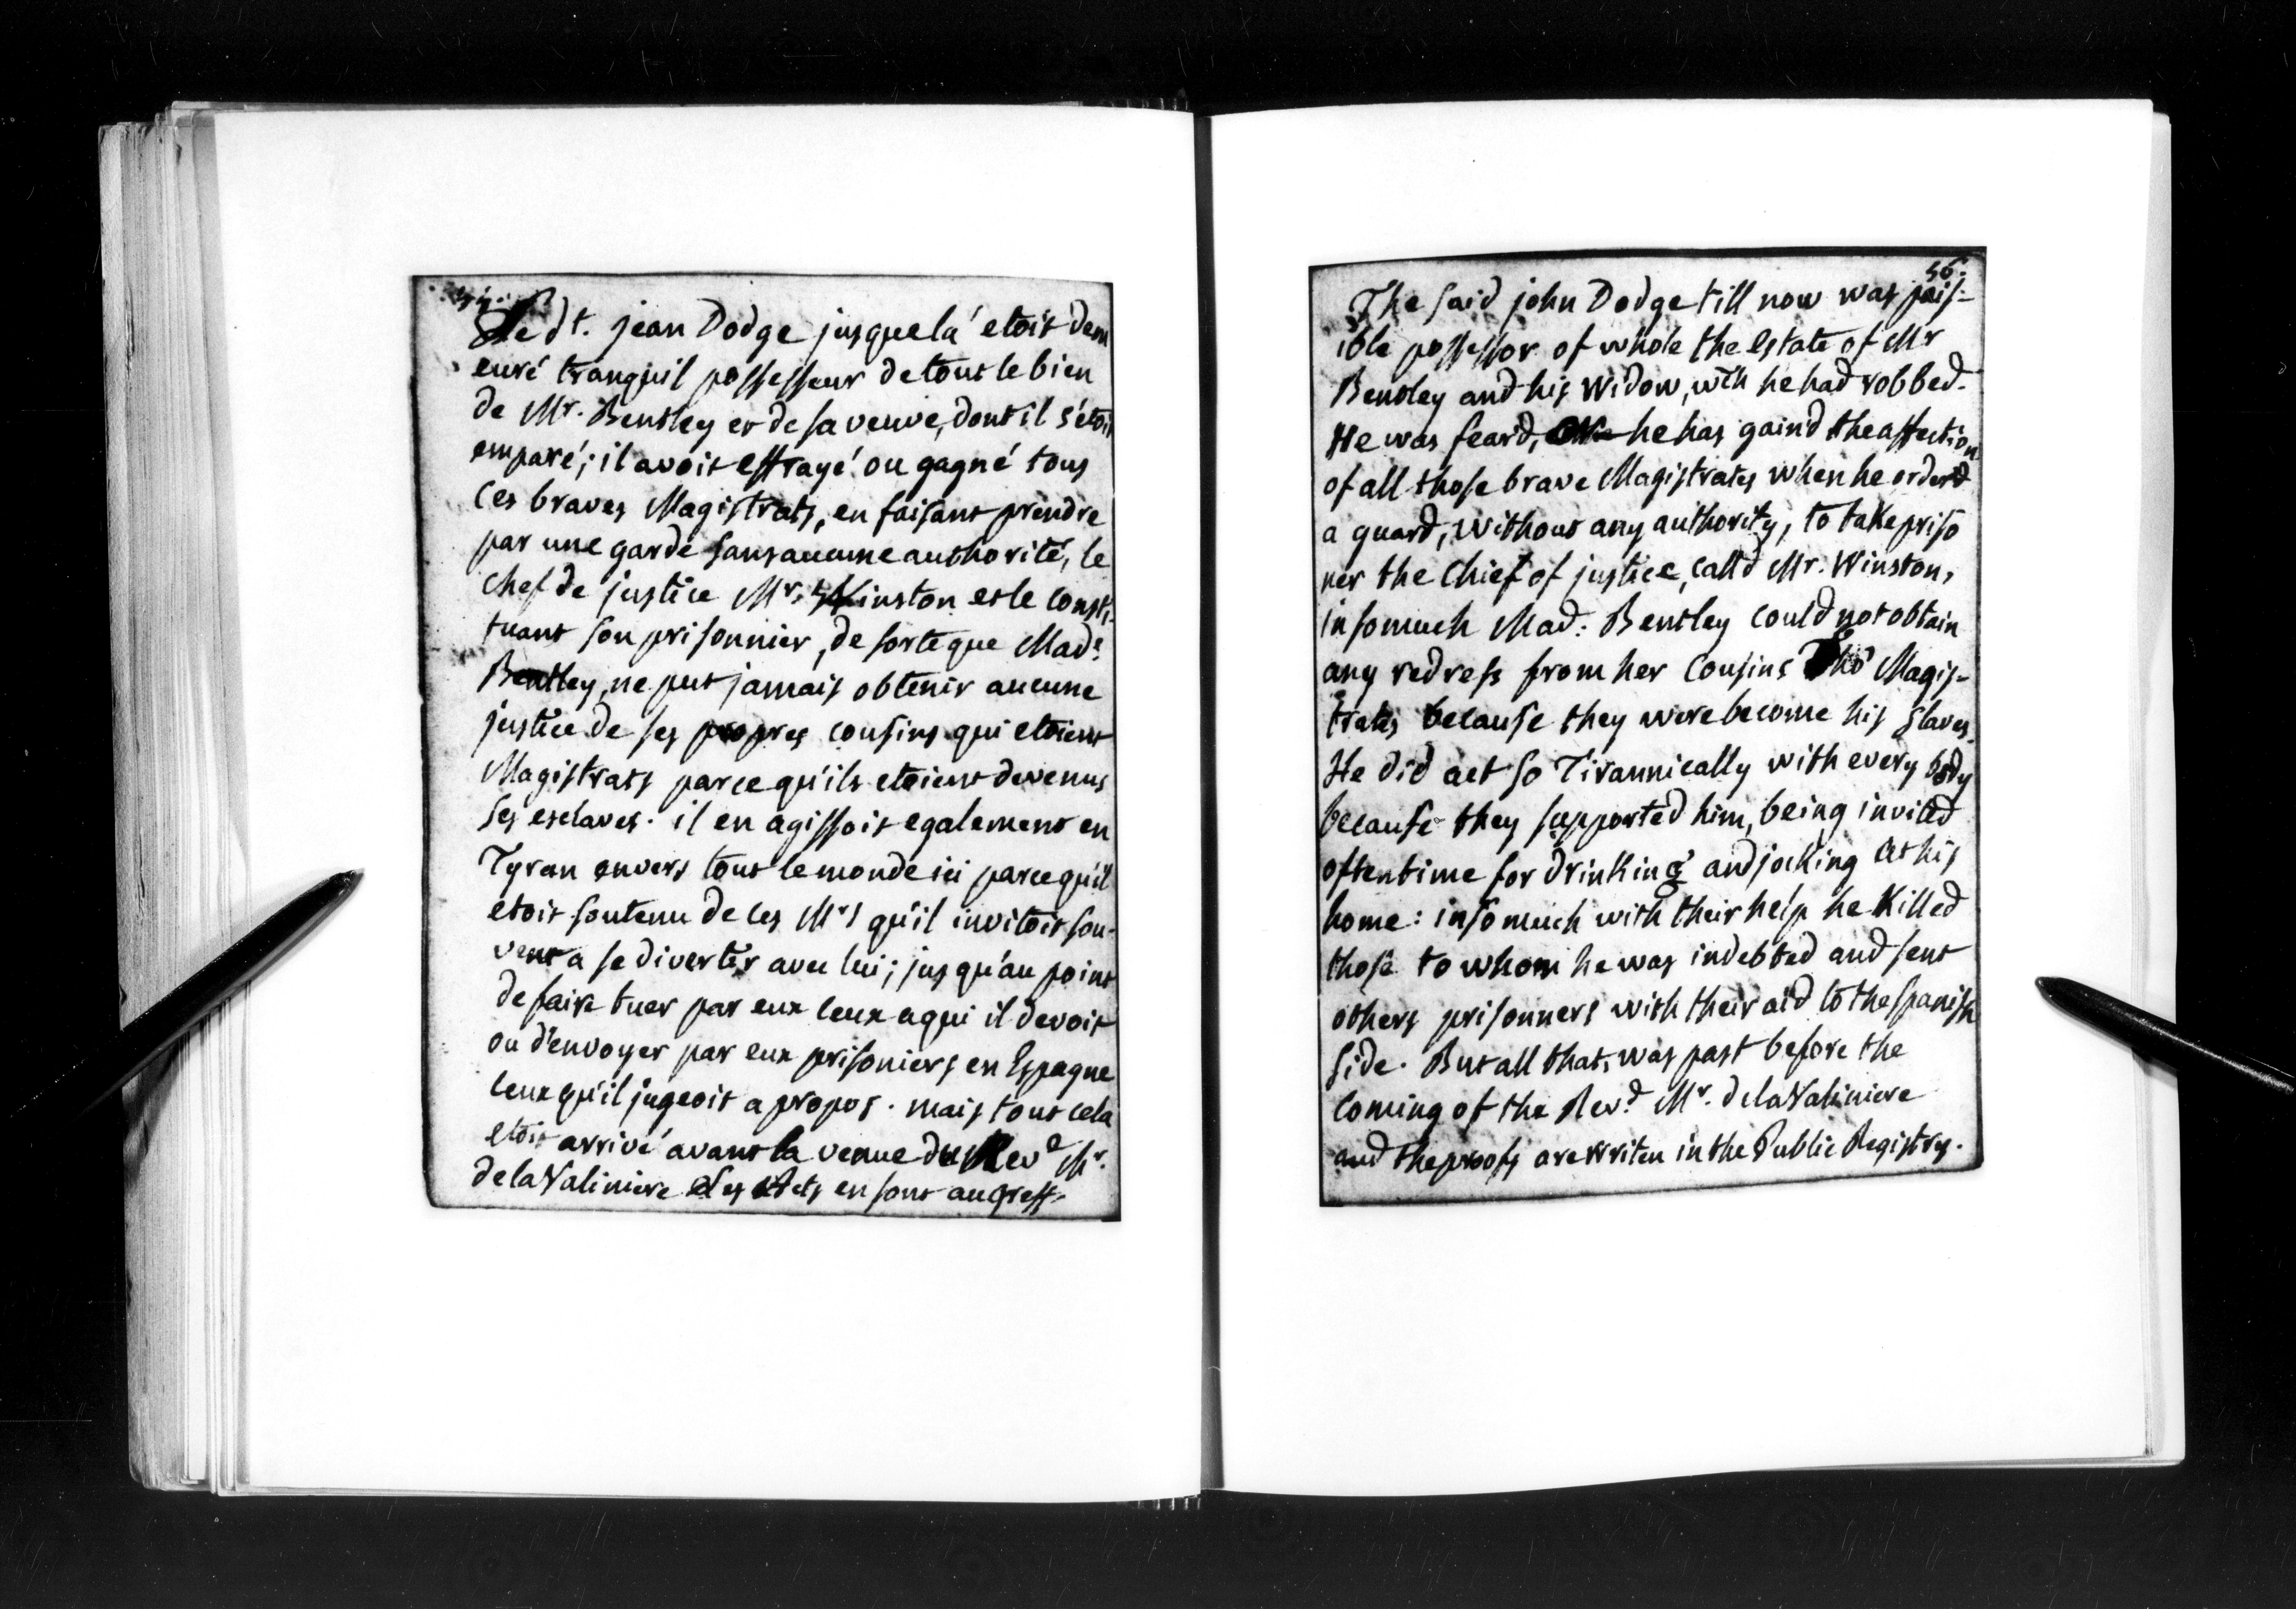 Le dt. jean Dodge jusque la' etoit dem
euré tranquil possesseur de tout le bien
de Mr. Bentley et de sa veuve, dont il s'étoit
emparé; il avoit effrayé ou gagné tous
ces braves Magistrats, en faisant prendre
par une garde sans aucune authorité, le
chef de justice Mr. Winston et le consti-
tuant son prisonnier, de sorte que Made.
Bentley, ne put jamais obtenir aucune
justice de ses propres cousins qui etoient
Magistrats parce qu'ils etoient devenus
ses esclaves. il en agissoit egalement en
Tyran envers tout le monde ici parcequ'il
etoit soutenu de ces Mrs qu'il invitoit sou-
vent a se divertir avec lui; jusqu'au point
de faire tuer par eux ceux a qui il devoit
ou d'envoyer par eux prisoniers en Espagne
ceux qu'il jugeoit a propos. mais tout cela
etoit arrivé avant la venue du Revd Mr.
de la Valiniere Les Acts en sont au greff.
56.
The said john Dodge till now was pais-
ible possessor of whole the estate of Mr
Bentley and his Widow, wch he had robbed.
He was feard, he has gain'd the affection
of all those brave Magistrates when he orderd
a guard, without any authority, to take priso
ner the chief of justice, calld Mr. Winston,
in somuch Mad: Bentley could not obtain
any redress from her cousins Tho' Magis-
trates because they were become his slaves.
He did act so Tirannically with every body
because they supported him, being invited
oftentime for drinking and jocking at his
home: insomuch with their help he killed
those to whom he was indebted and sent
others prisonners with their aid to the spanish
side. But all that, was past before the
coming of the Revd. Mr. de la Valiniere
and the proofs are writen in the Public Registry.